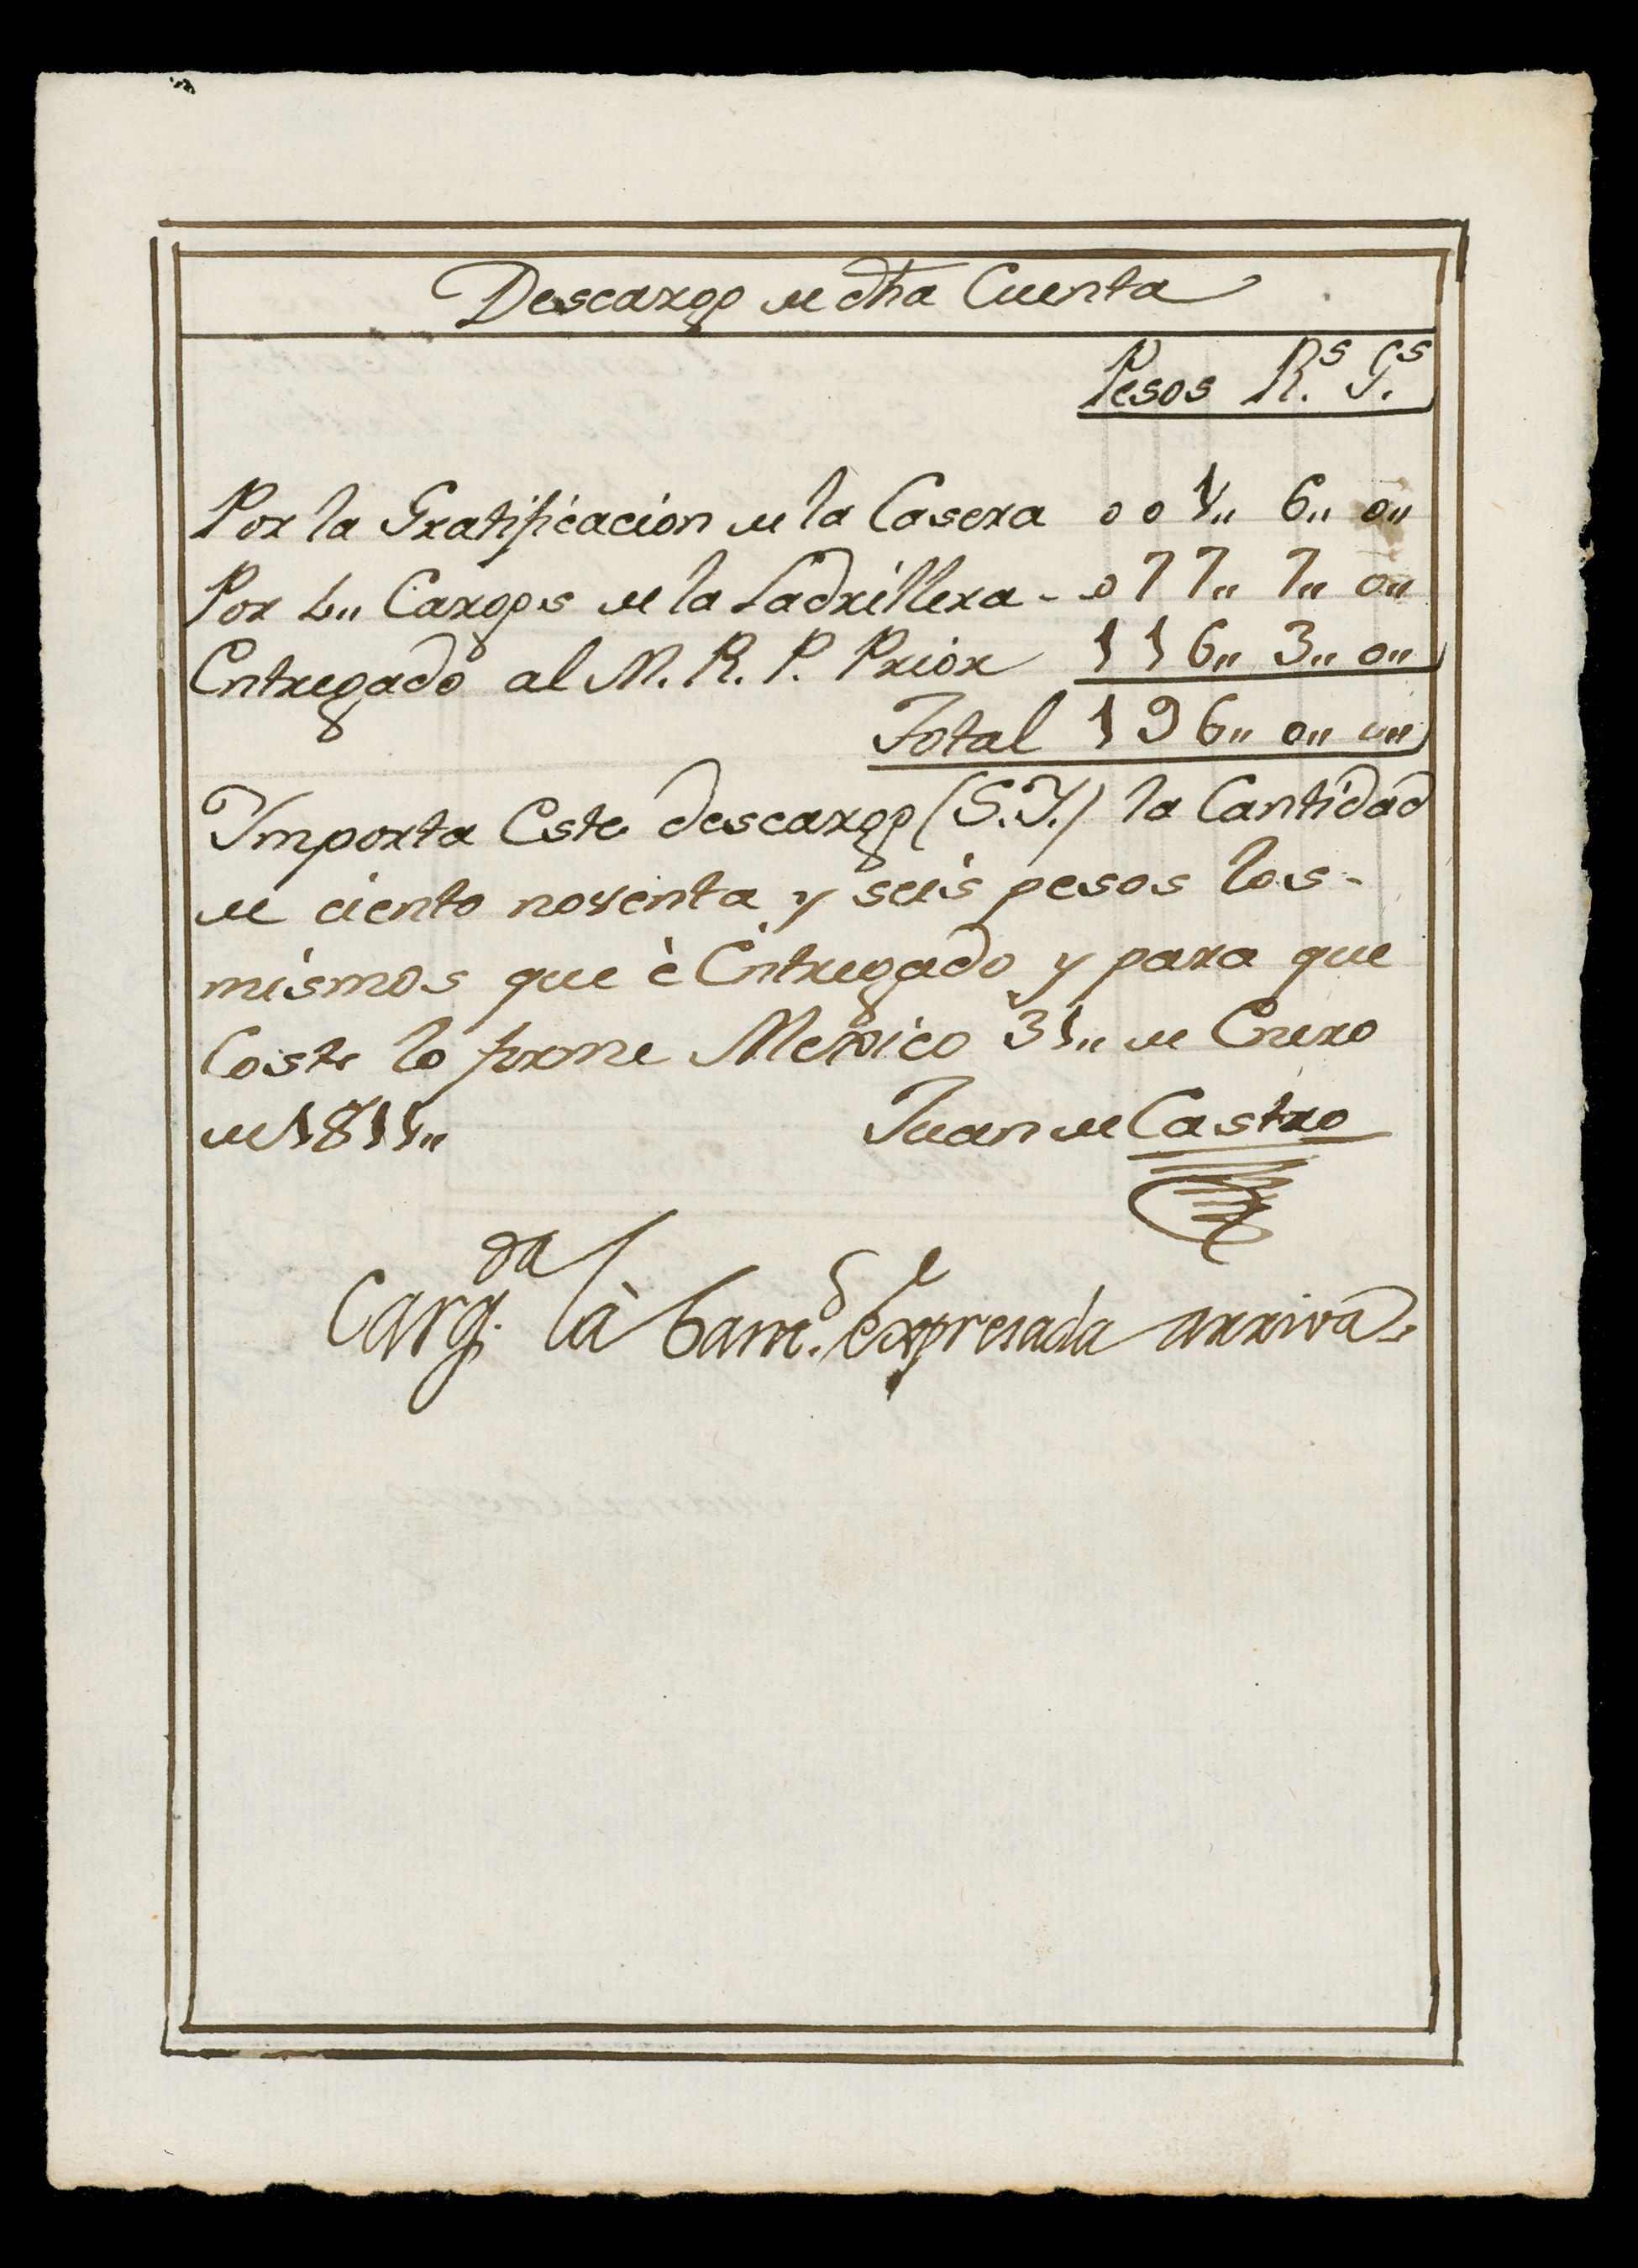 Descargo de dha Cuenta
Pesos Rˢ. Gˢ.
Por la Gratificacion de la Casera 001,, 6,, 0,,
Por 4,, Cargos de la Ladrillera - 077,, 7,, 0,,
Entregado al M. R. P. Prior 116,, 3,, 0,,
Total 196,, 0,, 0,,
Ymporta Este descargo (S.Y.) la Cantidad
de ciento noventa y seis pesos los-
mismos que è Entregado y para que
Coste lo forme Mexico 31,, de Enero
de 1811,,
Juan de Castro
Cargᵈᵃ. là expresada arriva.